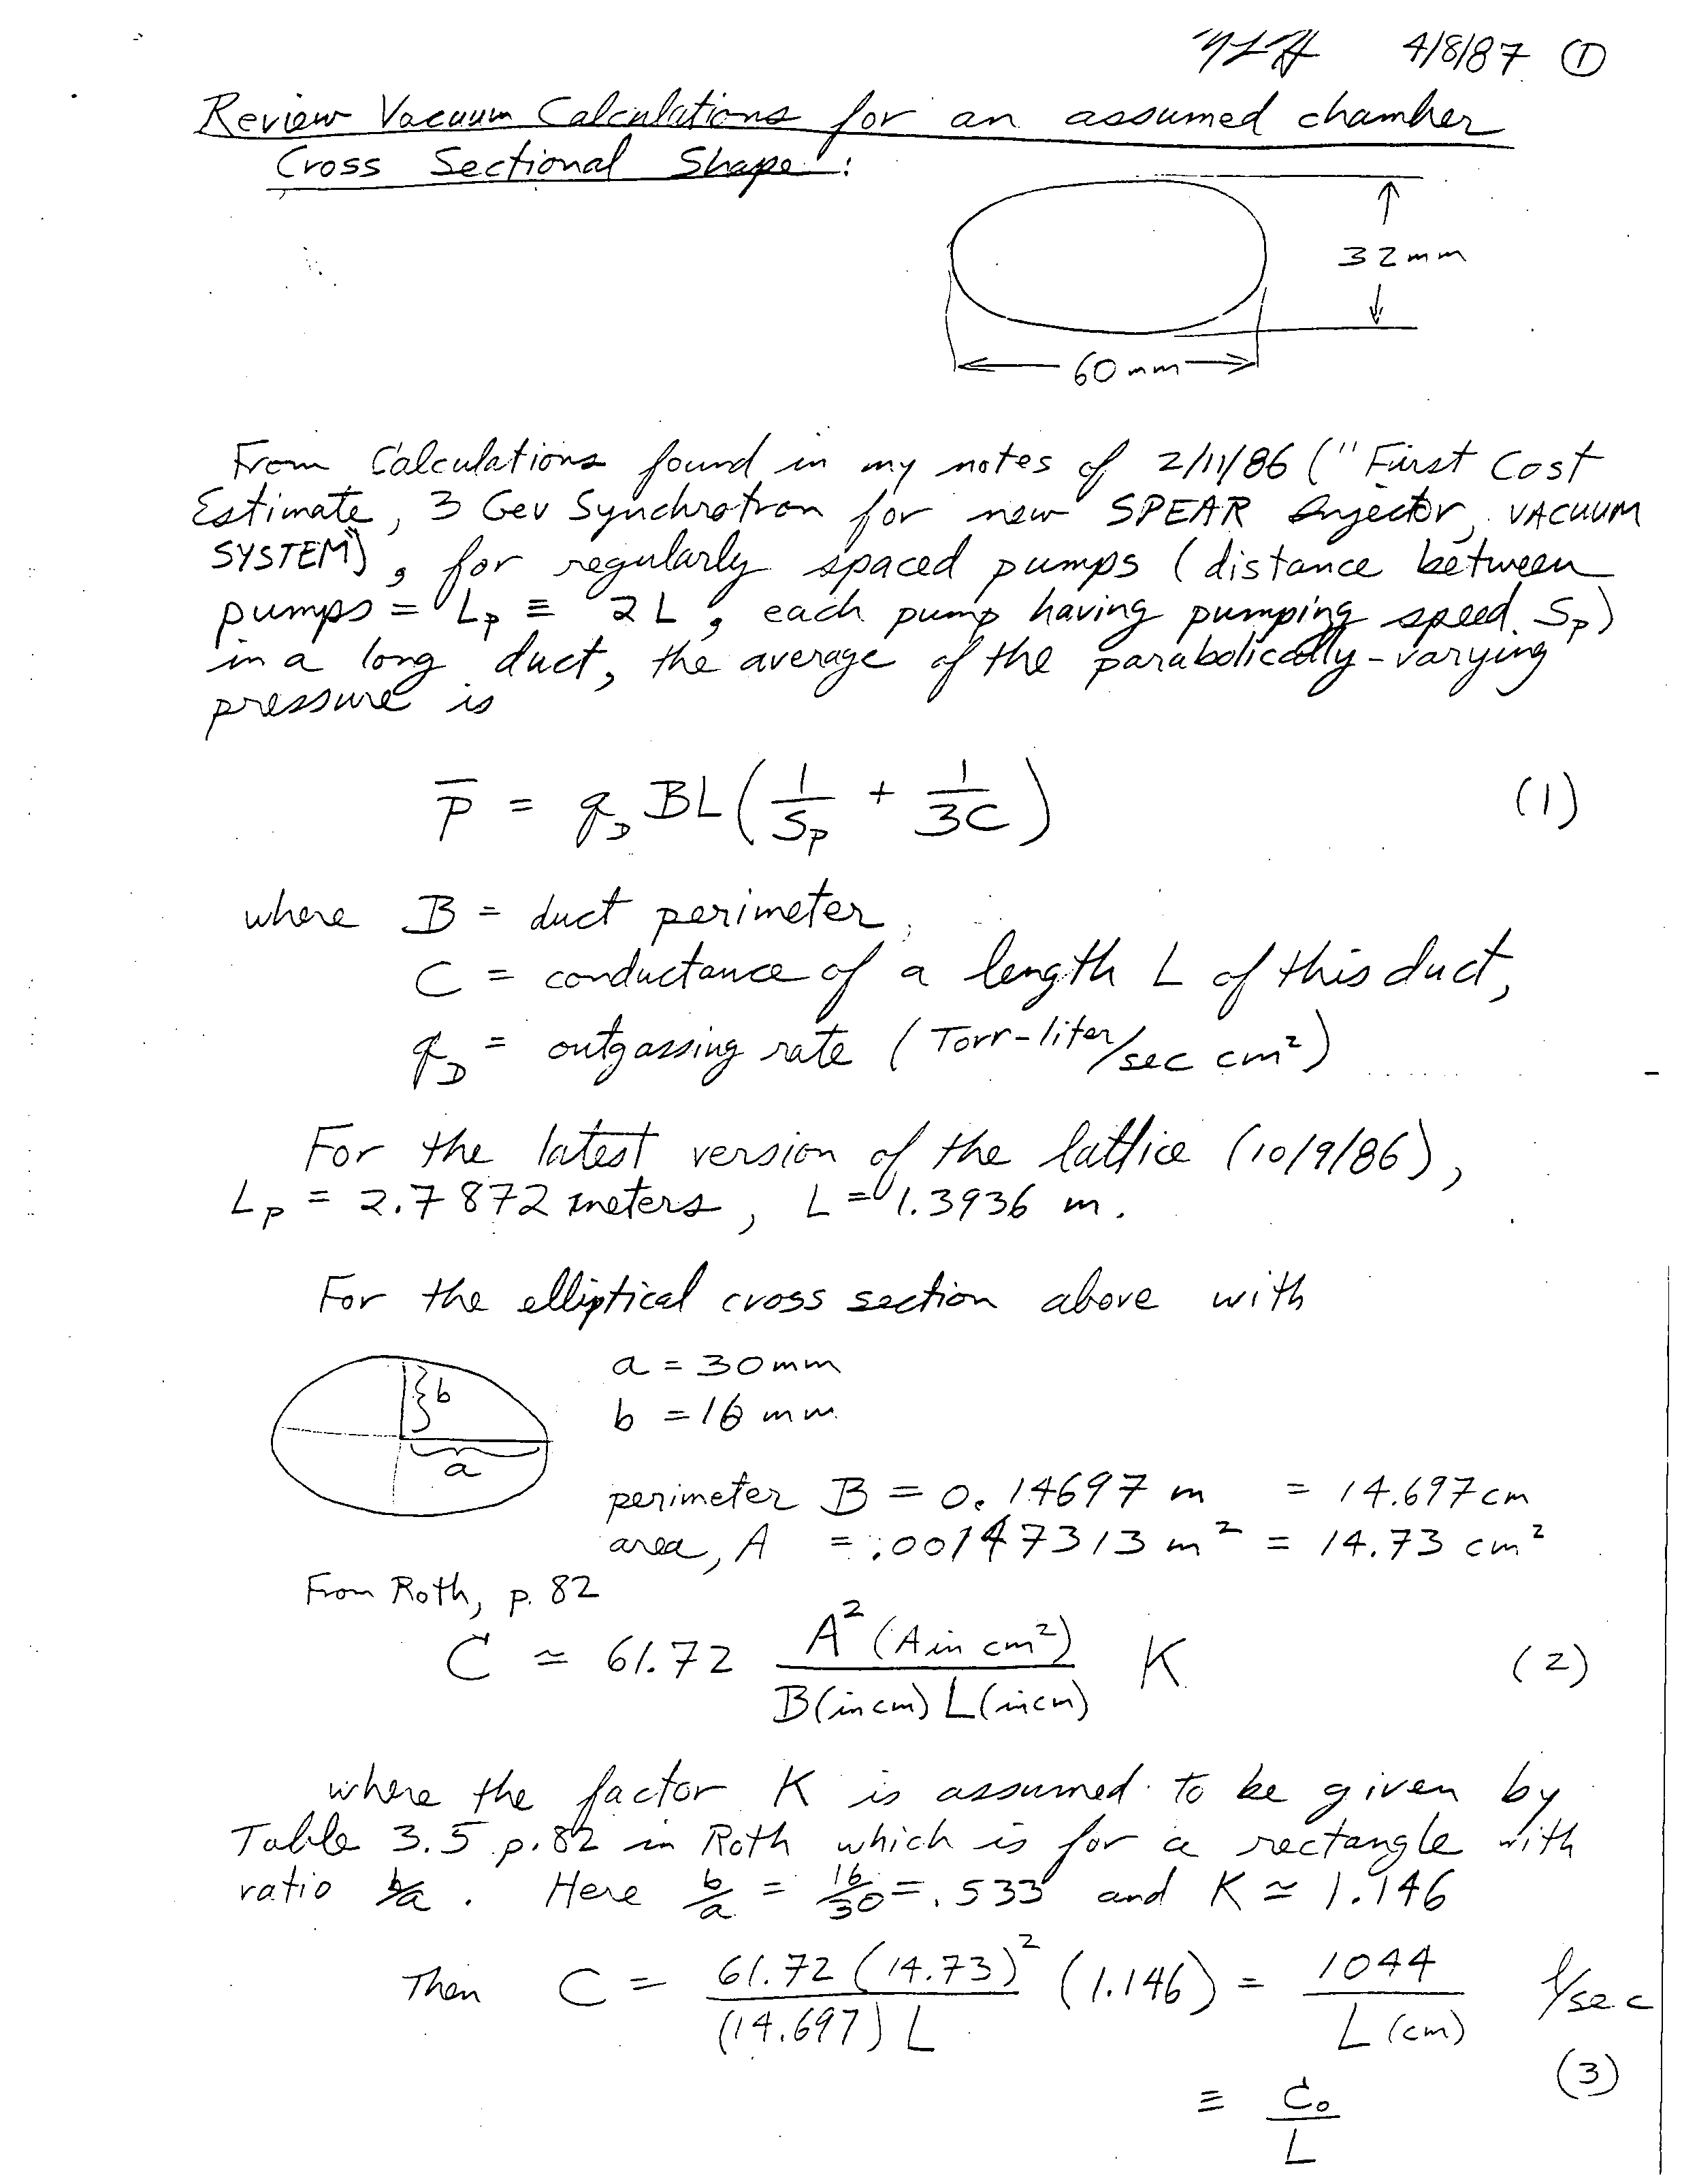 4/8/87 ①
Review Vacuum Calculations for an assumed chamber
Cross Sectional Shape:
32mm
60 mm
From Calculations found in my notes of 2/11/86 ("First Cost
Estimate, 3 Gev Synchrotron for new SPEAR Injector, VACUUM
SYSTEM"), for regularly spaced pumps (distance between
pumps = Lp ≡ 2L, each pump having pumping speed Sp)
in a long duct, the average of the parabolically-varying
pressure is
p̄ = q_D BL(1/Sp + 1/3C) (1)
where B = duct perimeter,
C = conductance of a length L of this duct,
q_D = outgassing rate (Torr-liter/sec cm²)
For the latest version of the lattice (10/9/86),
Lp = 2.7872 meters, L = 1.3936 m.
For the elliptical cross section above with
a = 30mm
b
b = 16 mm
a
perimeter B = 0.14697 m = 14.697 cm
area, A = .00147313 m² = 14.73 cm²
From Roth, p. 82
C ≃ 61.72 A² (A in cm²)/B(in cm) L(in cm) K (2)
where the factor K is assumed to be given by
Table 3.5 p.82 in Roth which is for a rectangle with
ratio b/a. Here b/a = 16/30 = .533 and K ≃ 1.146
Then C = 61.72 (14.73)²/(14.697) L (1.146) = 1044/L (cm) ℓ/sec
(3)
≡ C₀/L